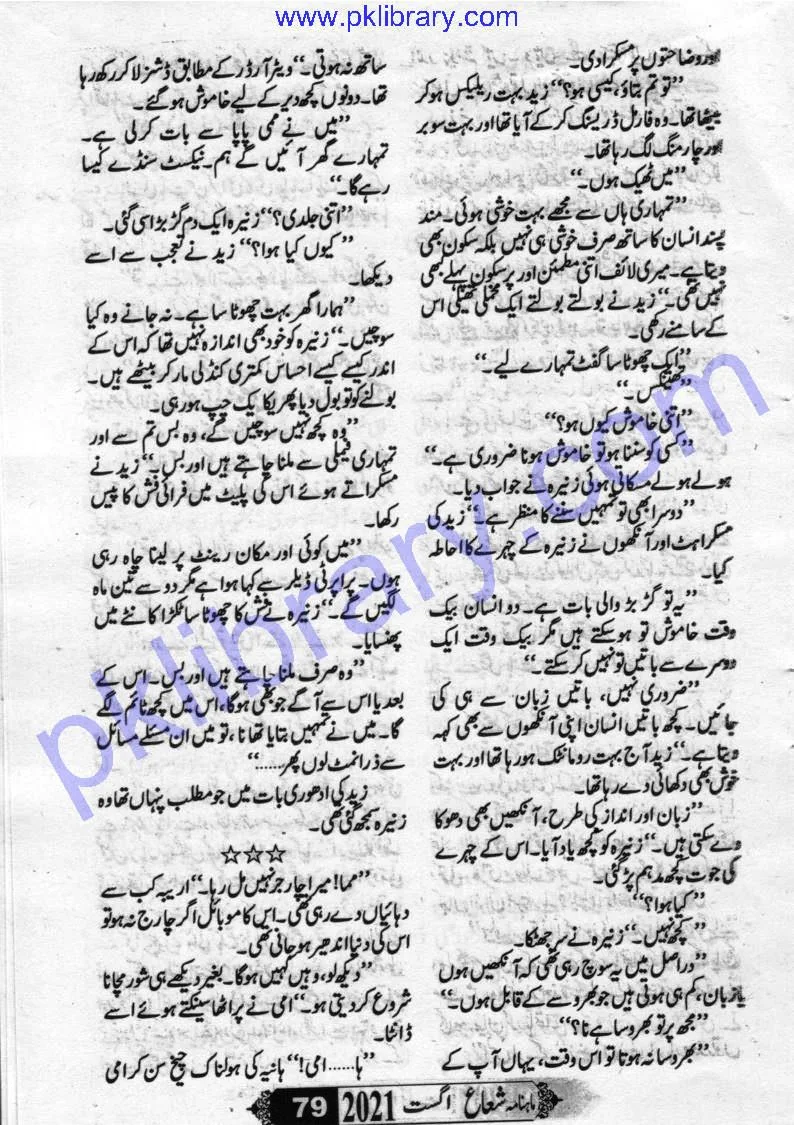 www.pklibrary.com
www.pklibrary.com
اور وضاحتوں پر مسکرا دی۔
”تو تم بتاؤ، کیسی ہو؟“ زید بہت ریلیکس ہو کر
بیٹھا تھا۔ وہ فارمل ڈریسنگ کر کے آیا تھا اور بہت سوبر
اور چارمنگ لگ رہا تھا۔
”میں ٹھیک ہوں۔“
”تمہاری ہاں سے مجھے بہت خوشی ہوئی۔ من
پسند انسان کا ساتھ صرف خوشی ہی نہیں بلکہ سکون بھی
دیتا ہے۔ میری لائف اتنی مطمئن اور پر سکون پہلے کبھی
نہیں تھی۔“ زید نے بولتے بولتے ایک مخملی تھیلی اس
کے سامنے رکھی۔
”ایک چھوٹا سا گفٹ تمہارے لیے۔“
”تھینکس۔“
”اتنی خاموش کیوں ہو؟“
”کسی کو سننا ہو تو خاموش ہونا ضروری ہے۔“
ہولے ہولے مسکاتی ہوئی زنیرہ نے جواب دیا۔
”دوسرا بھی تو تمہیں سننے کا منتظر ہے۔“ زید کی
مسکراہٹ اور آنکھوں نے زنیرہ کے چہرے کا احاطہ
کیا۔
”یہ تو گڑ بڑ والی بات ہے۔ دو انسان بیک
وقت خاموش تو ہو سکتے ہیں مگر بیک وقت ایک
دوسرے سے باتیں تو نہیں کر سکتے۔“
”ضروری نہیں، باتیں زبان سے ہی کی
جائیں۔ کچھ باتیں انسان اپنی آنکھوں سے بھی کہہ
دیتا ہے۔“ زید آج بہت رومانٹک ہو رہا تھا اور بہت
خوش بھی دکھائی دے رہا تھا۔
”زبان اور انداز کی طرح، آنکھیں بھی دھوکا
دے سکتی ہیں۔“ زنیرہ کو کچھ یاد آیا۔ اس کے چہرے
کی جوت کچھ مدھم پڑ گئی۔
”کیا ہوا؟“
”کچھ نہیں۔“ زنیرہ نے سر جھٹکا۔
”دراصل میں یہ سوچ رہی تھی کہ آنکھیں ہوں
یا زبان، کم ہی ہوتی ہیں جو بھروسے کے قابل ہوں۔“
”مجھ پر تو بھروسا ہے نا؟“
”بھروسا نہ ہوتا تو اس وقت، یہاں آپ کے
ساتھ نہ ہوتی۔“ ویٹر آرڈر کے مطابق ڈشز لا کر رکھ رہا
تھا۔ دونوں کچھ دیر کے لیے خاموش ہو گئے۔
”میں نے ممی پاپا سے بات کر لی ہے۔
تمہارے گھر آئیں گے ہم۔ نیکسٹ سنڈے کیسا
رہے گا۔“
”اتنی جلدی؟“ زنیرہ ایک دم گڑ بڑا سی گئی۔
”کیوں کیا ہوا؟“ زید نے تعجب سے اسے
دیکھا۔
”ہمارا گھر بہت چھوٹا سا ہے۔ نہ جانے وہ کیا
سوچیں۔“ زنیرہ کو خود بھی اندازہ نہیں تھا کہ اس کے
اندر کیسے کیسے احساس کمتری کنڈلی مار کر بیٹھے ہیں۔
بولنے کو تو بول دیا پھر یکا یک چپ ہو رہی۔
”وہ کچھ نہیں سوچیں گے، وہ بس تم سے اور
تمہاری فیملی سے ملنا چاہتے ہیں اور بس۔“ زید نے
مسکراتے ہوئے اس کی پلیٹ میں فرائی فش کا پیس
رکھا۔
”میں کوئی اور مکان رینٹ پر لینا چاہ رہی
ہوں۔ پراپرٹی ڈیلر سے کہا ہوا ہے مگر دو سے تین ماہ
لگیں گے۔“ زنیرہ نے فش کا چھوٹا سا ٹکڑا کانٹے میں
پھنسایا۔
”وہ صرف ملنا چاہتے ہیں اور بس۔ اس کے
بعد یا اس سے آگے جو بھی ہوگا، اس میں کچھ ٹائم لگے
گا۔ میں نے تمہیں بتایا تھا نا، تو میں ان مسئلے مسائل
سے ذرا نمٹ لوں پھر......“
زید کی ادھوری بات میں جو مطلب پنہاں تھا وہ
زنیرہ سمجھ گئی تھی۔
☆☆☆
”مما! میرا چارجر نہیں مل رہا۔“ اریبہ کب سے
دہائیاں دے رہی تھی۔ اس کا موبائل اگر چارج نہ ہو تو
اس کی دنیا اندھیر ہو جاتی تھی۔
”دیکھ لو، وہیں کہیں ہوگا۔ بغیر دیکھے ہی شور مچانا
شروع کر دیتی ہو۔“ امی نے پراٹھا سینکتے ہوئے اسے
ڈانٹا۔
”ہا...... امی!“ ہانیہ کی ہولناک چیخ سن کر امی
ماہنامہ شعاع اگست 2021 79